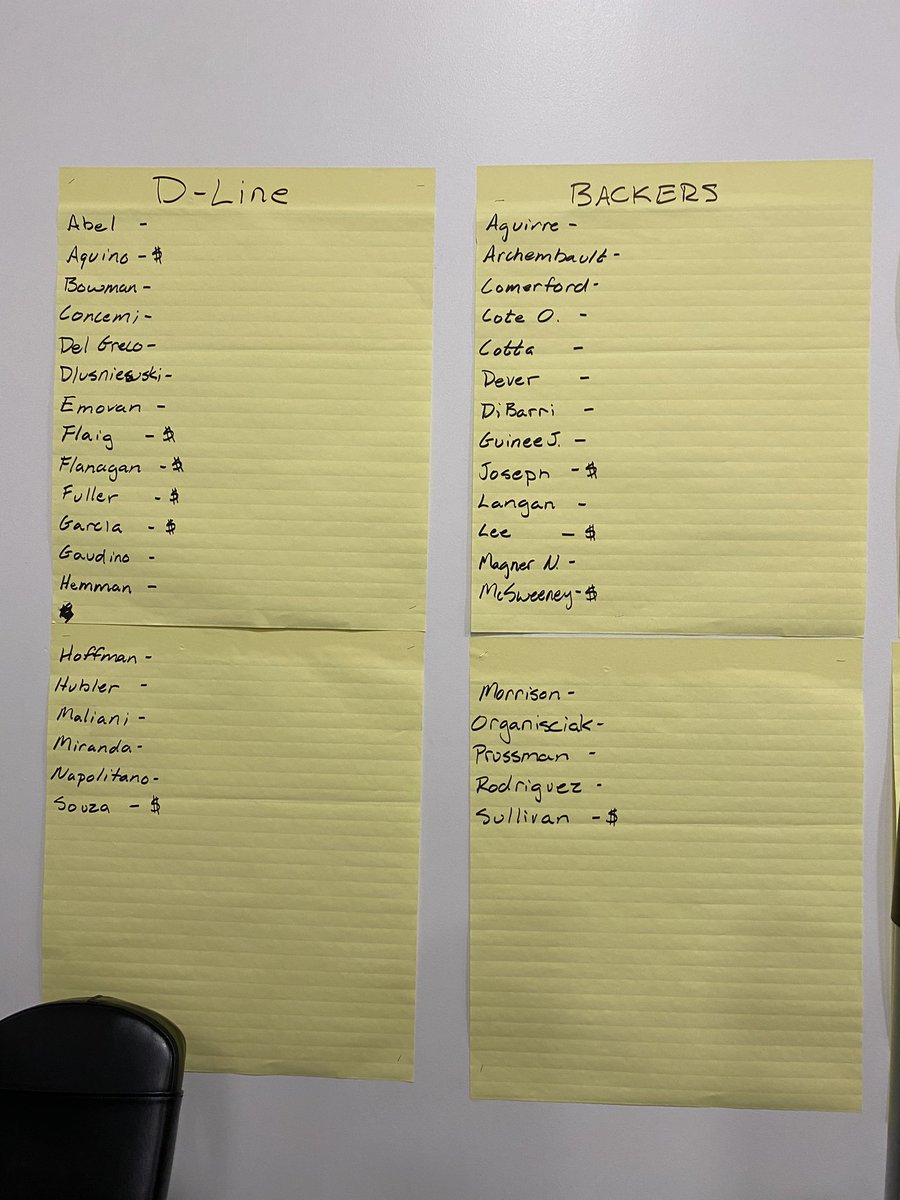 D-Line
Abel -
Aquino - $
Bowman -
Concemi -
Del Greco -
Dlusniewski -
Emovan -
Flaig - $
Flanagan - $
Fuller - $
Garcia - $
Gaudino -
Hemman -
Hoffman -
Hubler -
Maliani -
Miranda -
Napolitano -
Souza - $
BACKERS
Aguirre -
Archembault -
Comerford -
Cote O. -
Cotta -
Dever -
DiBarri -
Guinee J. -
Joseph - $
Langan -
Lee - $
Magner N. -
McSweeney - $
Morrison -
Organisciak -
Prussman -
Rodriguez -
Sullivan - $